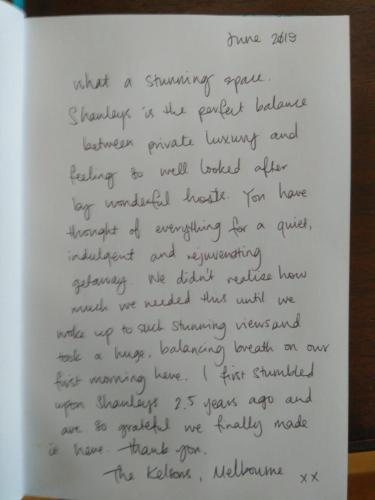 June 2019
What a stunning space.
Shanleys is the perfect balance
between private luxury and
feeling so well looked after
by wonderful hosts. You have
thought of everything for a quiet,
indulgent and rejuvenating
getaway. We didn't realise how
much we needed this until we
woke up to such stunning views and
took a huge, balancing breath on our
first morning here. I first stumbled
upon Shanleys 2.5 years ago and
are so grateful we finally made
it here. Thank you.
The Kelsons, Melbourne xx